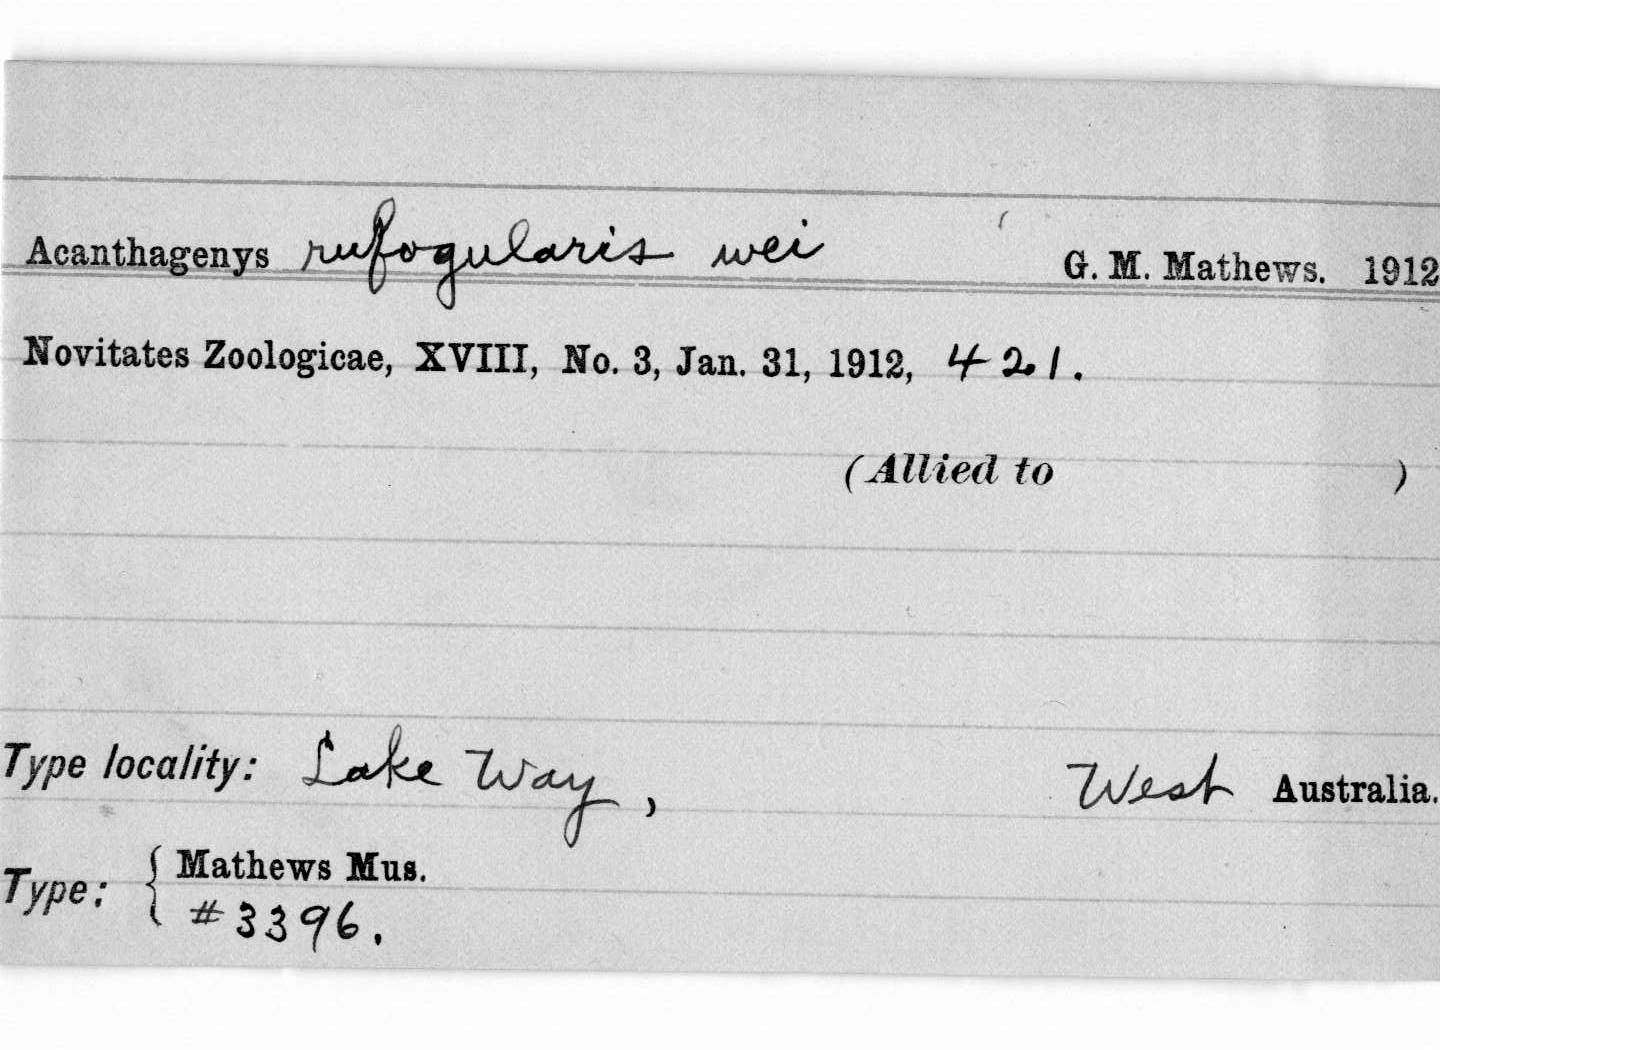 Acanthagenys rufogularis wei G. M. Mathews. 1912
Novitates Zoologicae, XVIII, No. 3, Jan. 31, 1912, 421.
(Allied to )
Type locality: Lake Way, West Australia.
Type: { Mathews Mus.
#3396.